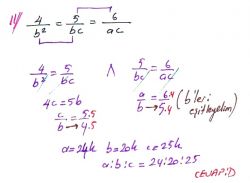 11/ 4/b² = 5/bc = 6/ac
4/b² = 5/bc ∧ 5/bc = 6/ac
4c = 5b
c/b → 5.5/4.5
a/b → 6.4/5.4 (b'leri eşitleyelim)
a = 24k b = 20k c = 25k
a:b:c = 24:20:25
CEVAP:D